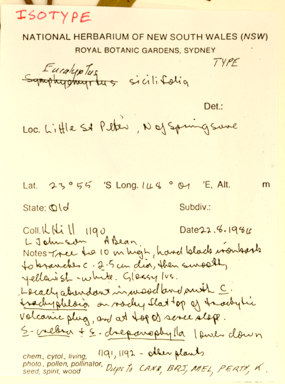 ISOTYPE
NATIONAL HERBARIUM OF NEW SOUTH WALES (NSW)
ROYAL BOTANIC GARDENS, SYDNEY
TYPE
Eucalyptus
Symphyomyrtus sicilifolia
Det.:
Loc. Little St Peter, N of Springsure
Lat. 23° 55 'S Long. 148° 01 'E, Alt. m
State: Qld Subdiv.:
Coll. K Hill 1190 22.8.1984
L Johnson A Bean
Notes: Tree to 10 m high, hard black ironbark
to branches c. 2-5 cm dia, then smooth
yellowish-white. Glossy lvs.
Locally abundant in woodland with C.
trachyphloia on rocky flat top of trachytic
volcanic plug, and at top of scree slope.
E. crebra & E. drepanophylla lower down
chem, cytol, living, 1191, 1192 - other plants
photo, pollen, pollinator,
seed, spirit, wood Dups to CANB, BRI, MEL, PERTH, K.